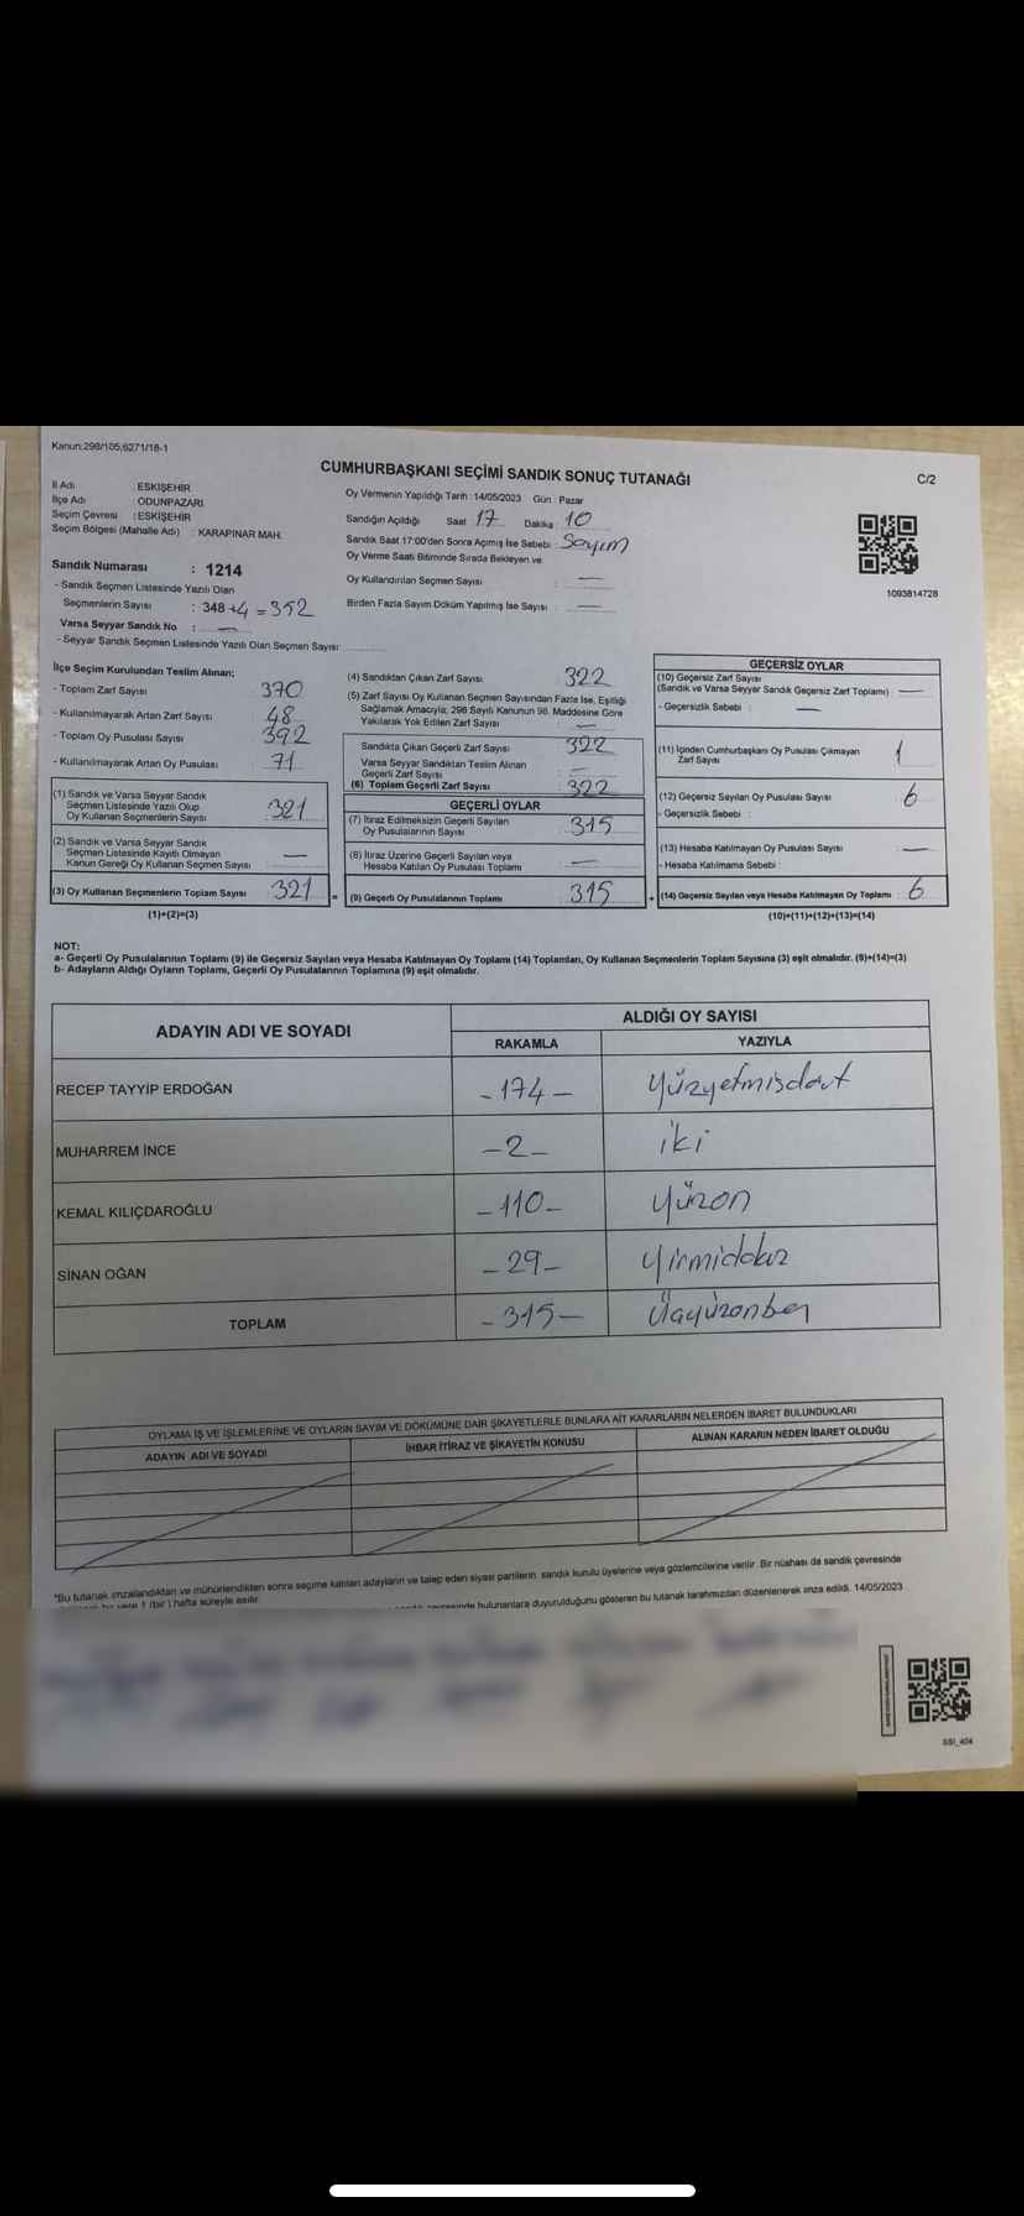 Kanun:298/105,6271/18-1
CUMHURBAŞKANI SEÇİMİ SANDIK SONUÇ TUTANAĞI
C/2
İl Adı : ESKİŞEHİR
İlçe Adı : ODUNPAZARI
Seçim Çevresi : ESKİŞEHİR
Seçim Bölgesi (Mahalle Adı) : KARAPINAR MAH.
Sandık Numarası : 1214
- Sandık Seçmen Listesinde Yazılı Olan
Seçmenlerin Sayısı : 348 +4 = 352
Varsa Seyyar Sandık No : —
- Seyyar Sandık Seçmen Listesinde Yazılı Olan Seçmen Sayısı
Oy Vermenin Yapıldığı Tarih : 14/05/2023 Gün : Pazar
Sandığın Açıldığı Saat 17 Dakika : 10
Sandık Saat 17:00'den Sonra Açılmış İse Sebebi : Sayım
Oy Verme Saati Bitiminde Sırada Bekleyen ve
Oy Kullandırılan Seçmen Sayısı : —
Birden Fazla Sayım Döküm Yapılmış İse Sayısı : —
1093814728
İlçe Seçim Kurulundan Teslim Alınan;
- Toplam Zarf Sayısı 370
- Kullanılmayarak Artan Zarf Sayısı 48
- Toplam Oy Pusulası Sayısı 392
- Kullanılmayarak Artan Oy Pusulası 71
(1) Sandık ve Varsa Seyyar Sandık
Seçmen Listesinde Yazılı Olup
Oy Kullanan Seçmenlerin Sayısı : 321
(2) Sandık ve Varsa Seyyar Sandık
Seçmen Listesinde Kayıtlı Olmayan
Kanun Gereği Oy Kullanan Seçmen Sayısı —
(3) Oy Kullanan Seçmenlerin Toplam Sayısı : 321
(1)+(2)=(3)
(4) Sandıktan Çıkan Zarf Sayısı 322
(5) Zarf Sayısı Oy Kullanan Seçmen Sayısından Fazla İse, Eşitliği
Sağlamak Amacıyla; 298 Sayılı Kanunun 98. Maddesine Göre
Yakılarak Yok Edilen Zarf Sayısı —
Sandıkta Çıkan Geçerli Zarf Sayısı 322
Varsa Seyyar Sandıktan Teslim Alınan
Geçerli Zarf Sayısı —
(6) Toplam Geçerli Zarf Sayısı 322
GEÇERLİ OYLAR
(7) İtiraz Edilmeksizin Geçerli Sayılan
Oy Pusulalarının Sayısı 315
(8) İtiraz Üzerine Geçerli Sayılan veya
Hesaba Katılan Oy Pusulası Toplamı —
= (9) Geçerli Oy Pusulalarının Toplamı 315
GEÇERSİZ OYLAR
(10) Geçersiz Zarf Sayısı
(Sandık ve Varsa Seyyar Sandık Geçersiz Zarf Toplamı) : —
- Geçersizlik Sebebi : —
(11) İçinden Cumhurbaşkanı Oy Pusulası Çıkmayan
Zarf Sayısı 1
(12) Geçersiz Sayılan Oy Pusulası Sayısı 6
- Geçersizlik Sebebi :
(13) Hesaba Katılmayan Oy Pusulası Sayısı —
- Hesaba Katılmama Sebebi :
+ (14) Geçersiz Sayılan veya Hesaba Katılmayan Oy Toplamı : 6
(10)+(11)+(12)+(13)=(14)
NOT:
a- Geçerli Oy Pusulalarının Toplamı (9) ile Geçersiz Sayılan veya Hesaba Katılmayan Oy Toplamı (14) Toplamları, Oy Kullanan Seçmenlerin Toplam Sayısına (3) eşit olmalıdır. (9)+(14)=(3)
b- Adayların Aldığı Oyların Toplamı, Geçerli Oy Pusulalarının Toplamına (9) eşit olmalıdır.
ADAYIN ADI VE SOYADI
ALDIĞI OY SAYISI
RAKAMLA YAZIYLA
RECEP TAYYİP ERDOĞAN -174- Yüzyetmişdört
MUHARREM İNCE -2- iki
KEMAL KILIÇDAROĞLU -110- Yüzon
SİNAN OĞAN -29- Yirmidokuz
TOPLAM -315- Üçyüzonbeş
OYLAMA İŞ VE İŞLEMLERİNE VE OYLARIN SAYIM VE DÖKÜMÜNE DAİR ŞİKAYETLERLE BUNLARA AİT KARARLARIN NELERDEN İBARET BULUNDUKLARI
ADAYIN ADI VE SOYADI İHBAR İTİRAZ VE ŞİKAYETİN KONUSU ALINAN KARARIN NEDEN İBARET OLDUĞU
"Bu tutanak imzalandıktan ve mühürlendikten sonra seçime katılan adayların ve talep eden siyasi partilerin sandık kurulu üyelerine veya gözlemcilerine verilir. Bir nüshası da sandık çevresinde
1 (bir) hafta süreyle asılır. bulunanlara duyurulduğunu gösteren bu tutanak tarafımızdan düzenlenerek imza edildi. 14/05/2023
SSI_404